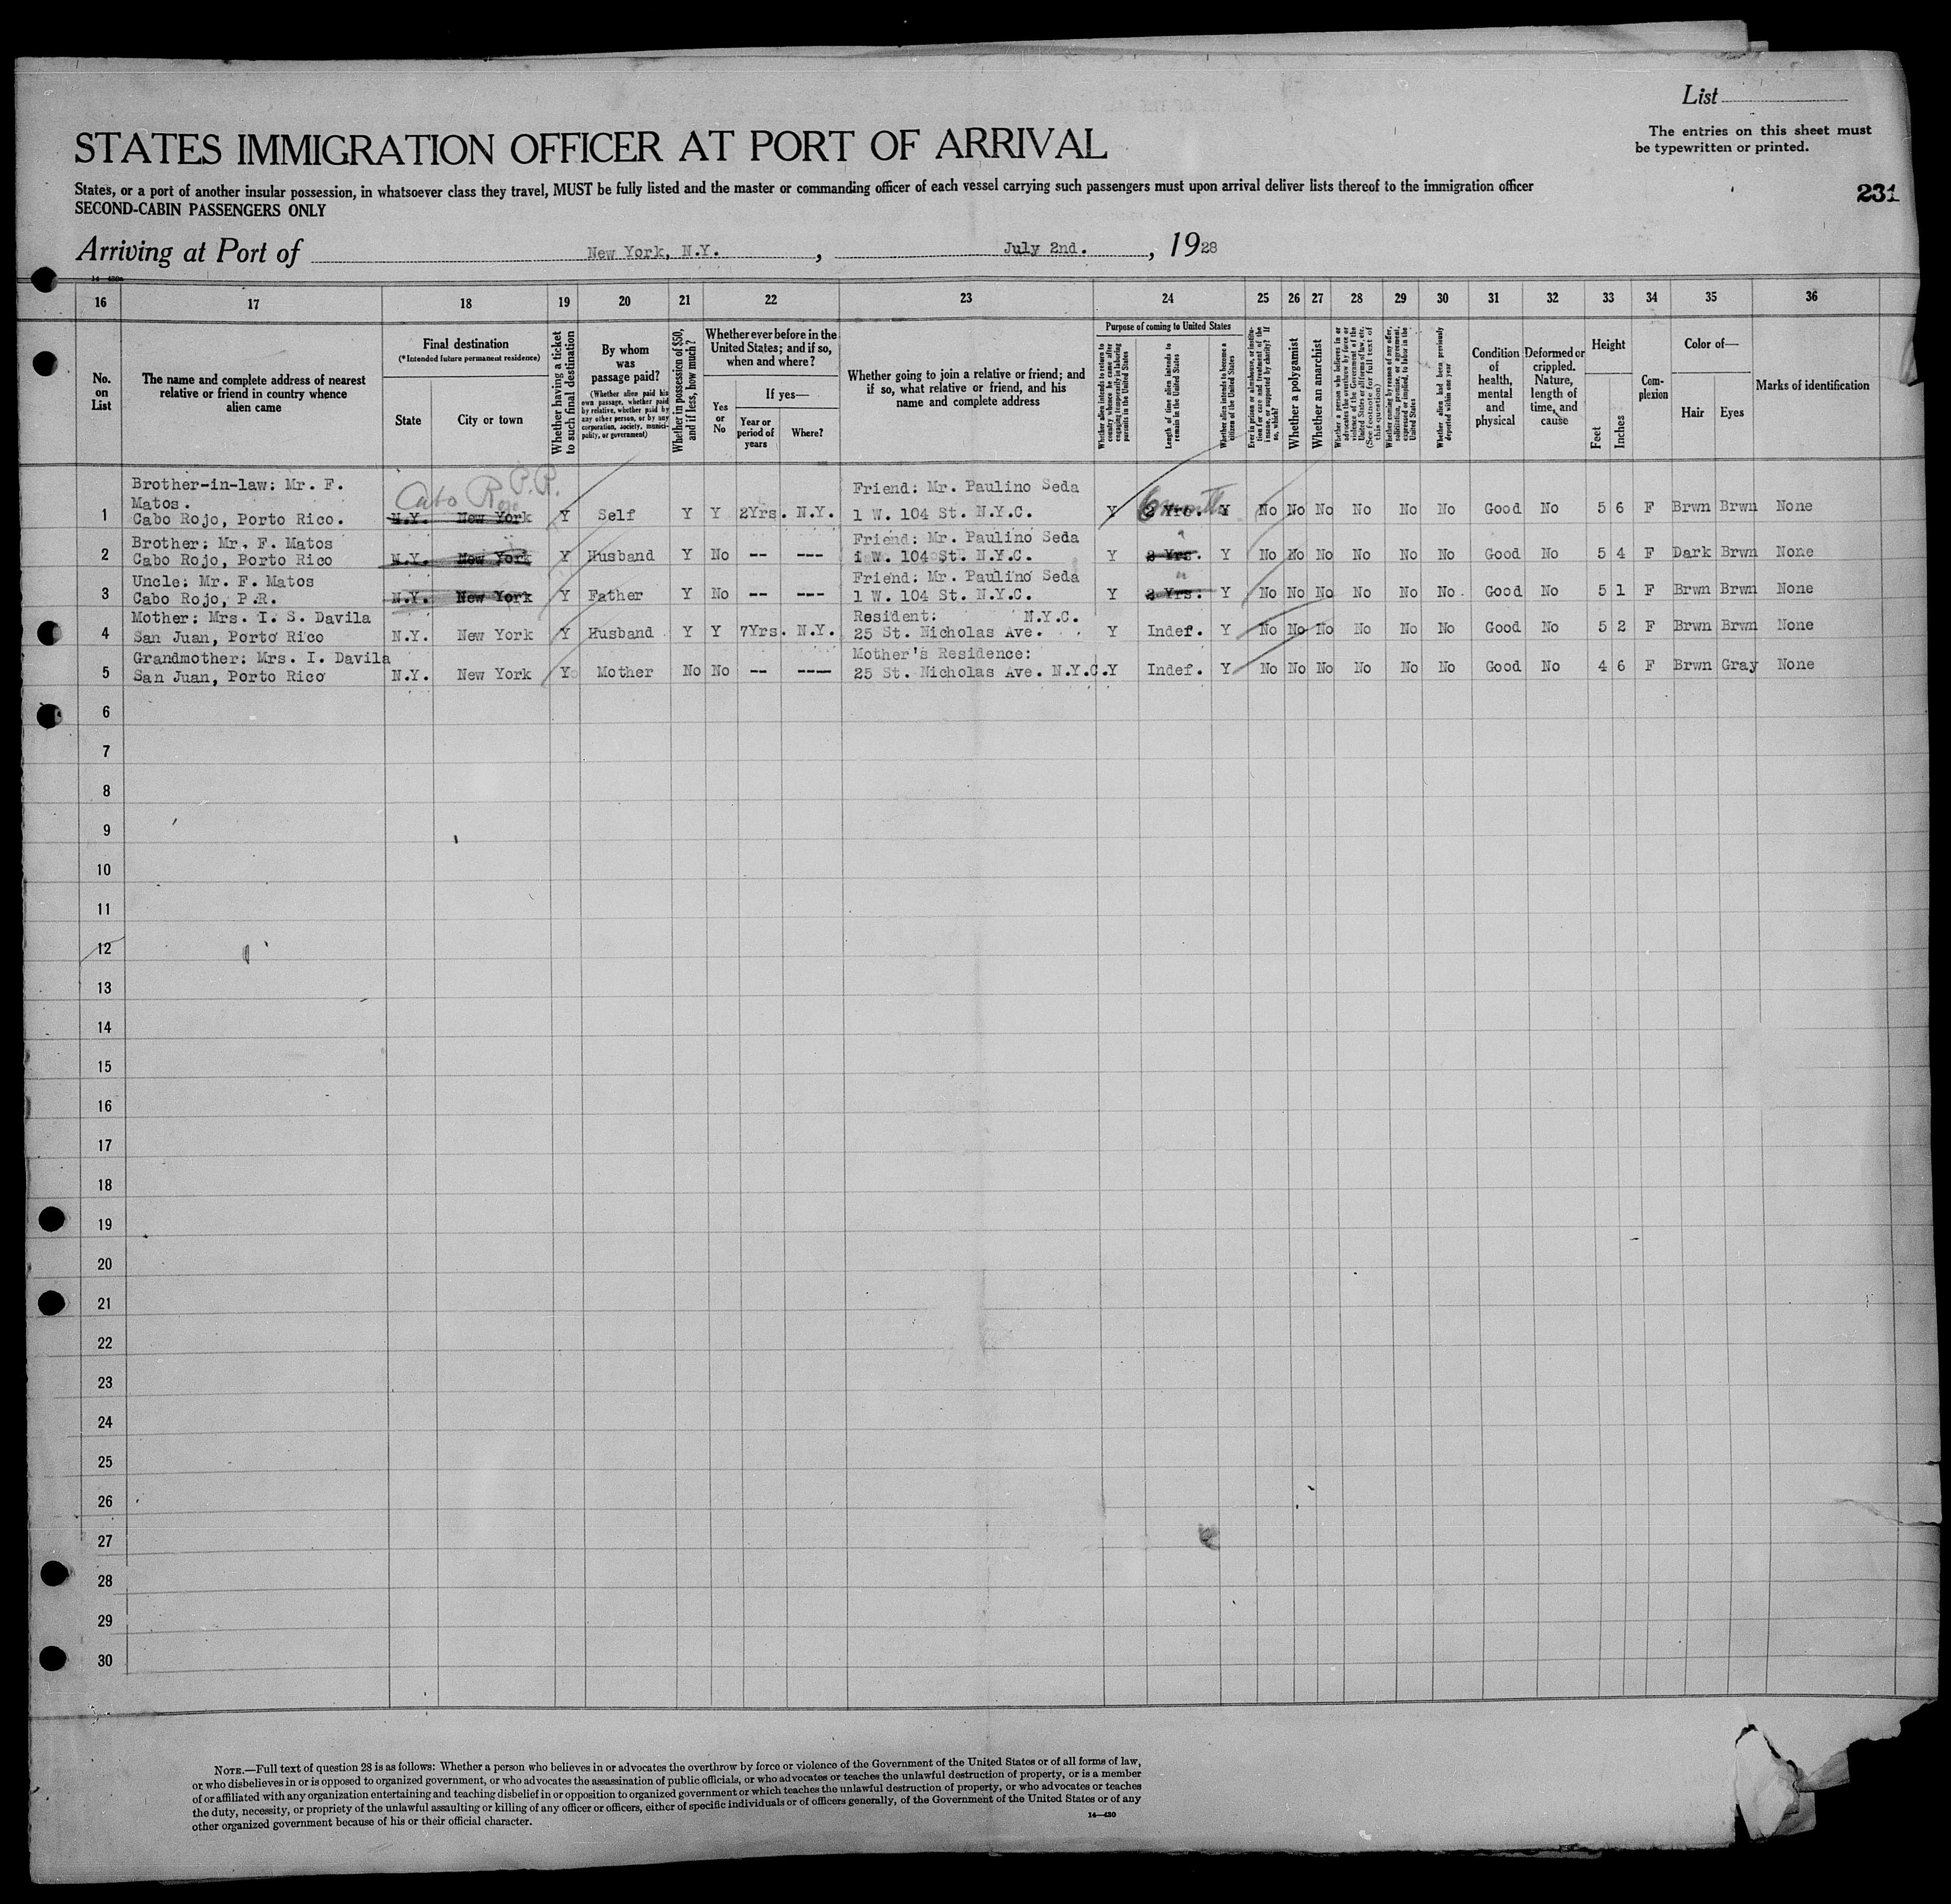 List
The entries on this sheet must
be typewritten or printed.
STATES IMMIGRATION OFFICER AT PORT OF ARRIVAL
States, or a port of another insular possession, in whatsoever class they travel, MUST be fully listed and the master or commanding officer of each vessel carrying such passengers must upon arrival deliver lists thereof to the immigration officer
SECOND-CABIN PASSENGERS ONLY
231
Arriving at Port of New York, N.Y. , July 2nd. , 1928
16 17 18 19 20 21 22 23 24 25 26 27 28 29 30 31 32 33 34 35 36
No. on List
The name and complete address of nearest relative or friend in country whence alien came
Final destination
(*Intended future permanent residence)
State
City or town
Whether having a ticket to such final destination
By whom was passage paid?
(Whether alien paid his own passage, whether paid by relative, whether paid by any other person, or by any corporation, society, municipality, or government)
Whether in possession of $50, and if less, how much?
Whether ever before in the United States; and if so, when and where?
Yes or No
If yes—
Year or period of years
Where?
Whether going to join a relative or friend; and if so, what relative or friend, and his name and complete address
Purpose of coming to United States
Whether alien intends to return to country whence he came after engaging temporarily in laboring pursuits in the United States
Length of time alien intends to remain in the United States
Whether alien intends to become a citizen of the United States
Ever in prison or almshouse, or institution for care and treatment of the insane, or supported by charity? If so, which?
Whether a polygamist
Whether an anarchist
Whether a person who believes in or advocates the overthrow by force or violence of the Government of the United States or all forms of law, etc. (See footnote for full text of this question)
Whether coming by reason of any offer, solicitation, promise, or agreement, expressed or implied, to labor in the United States
Whether alien had been previously deported within one year
Condition of health, mental and physical
Deformed or crippled. Nature, length of time, and cause
Height
Feet
Inches
Complexion
Color of—
Hair
Eyes
Marks of identification
Cabo Rojo P.R.
6 months
1 Brother-in-law: Mr. F. Matos. Cabo Rojo, Porto Rico. N.Y. New York Y Self Y Y 2Yrs. N.Y. Friend: Mr. Paulino Seda 1 W. 104 St. N.Y.C. Y 2 Yrs. Y No No No No No No Good No 5 6 F Brwn Brwn None
2 Brother: Mr. F. Matos Cabo Rojo, Porto Rico N.Y. New York Y Husband Y No -- --- Friend: Mr. Paulino Seda 1 W. 104 St. N.Y.C. Y 2 Yrs. " Y No No No No No No Good No 5 4 F Dark Brwn None
3 Uncle: Mr. F. Matos Cabo Rojo, P.R. N.Y. New York Y Father Y No -- --- Friend: Mr. Paulino Seda 1 W. 104 St. N.Y.C. Y 2 Yrs. " Y No No No No No No Good No 5 1 F Brwn Brwn None
4 Mother: Mrs. I. S. Davila San Juan, Porto Rico N.Y. New York Y Husband Y Y 7Yrs. N.Y. Resident: N.Y.C. 25 St. Nicholas Ave. Y Indef. Y No No No No No No Good No 5 2 F Brwn Brwn None
5 Grandmother: Mrs. I. Davila San Juan, Porto Rico N.Y. New York Y Mother No No -- ---- Mother's Residence: 25 St. Nicholas Ave. N.Y.C. Y Indef. Y No No No No No No Good No 4 6 F Brwn Gray None
6
7
8
9
10
11
12
13
14
15
16
17
18
19
20
21
22
23
24
25
26
27
28
29
30
NOTE.—Full text of question 28 is as follows: Whether a person who believes in or advocates the overthrow by force or violence of the Government of the United States or of all forms of law,
or who disbelieves in or is opposed to organized government, or who advocates the assassination of public officials, or who advocates or teaches the unlawful destruction of property, or is a member
of or affiliated with any organization entertaining and teaching disbelief in or opposition to organized government or which teaches the unlawful destruction of property, or who advocates or teaches
the duty, necessity, or propriety of the unlawful assaulting or killing of any officer or officers, either of specific individuals or of officers generally, of the Government of the United States or of any
other organized government because of his or their official character.
14—430